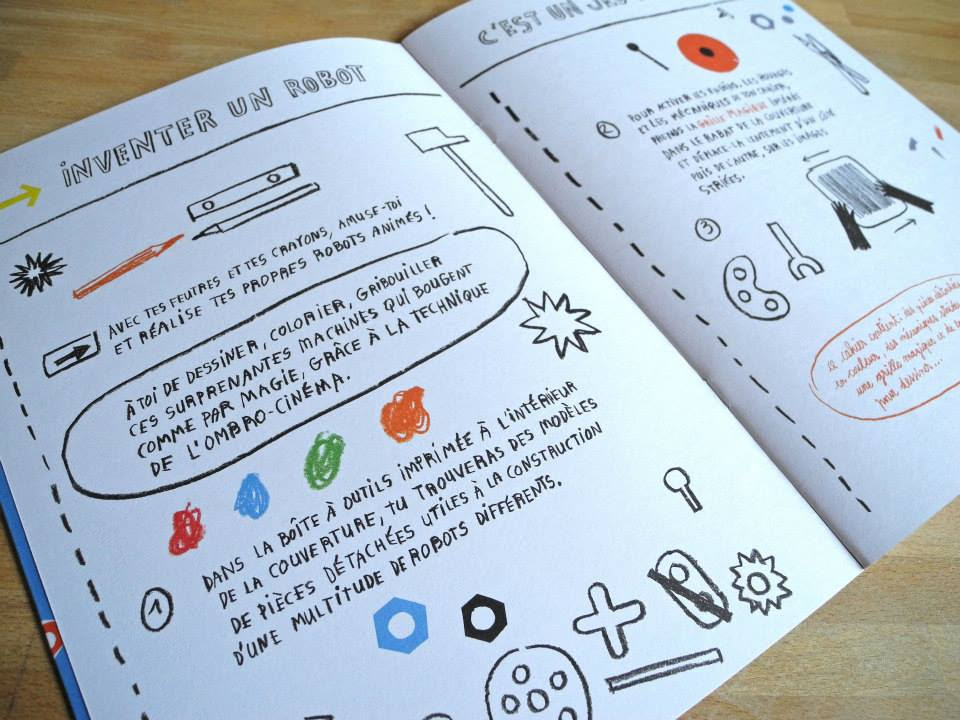 INVENTER UN ROBOT
AVEC TES FEUTRES ET TES CRAYONS, AMUSE-TOI
ET RÉALISE TES PROPRES ROBOTS ANIMÉS !
À TOI DE DESSINER, COLORIER, GRIBOUILLER
CES SURPRENANTES MACHINES QUI BOUGENT
COMME PAR MAGIE, GRÂCE À LA TECHNIQUE
DE L'OMBRO-CINÉMA.
1
DANS LA BOÎTE À OUTILS IMPRIMÉE À L'INTÉRIEUR
DE LA COUVERTURE, TU TROUVERAS DES MODÈLES
DE PIÈCES DÉTACHÉES UTILES À LA CONSTRUCTION
D'UNE MULTITUDE DE ROBOTS DIFFÉRENTS.
C'EST UN
2
POUR ACTIVER LES ROBOTS, LES ROUAGES
ET LES MÉCANIQUES DE TON CAHIER,
PRENDS LA GRILLE MAGIQUE INSÉRÉE
DANS LE RABAT DE LA COUVERTURE
ET DÉPLACE-LA LENTEMENT D'UN CÔTÉ
PUIS DE L'AUTRE, SUR LES IMAGES
STRIÉES.
3
Ce cahier contient des pièces
en couleur, des mécaniques
une grille magique et de
pour dessiner...